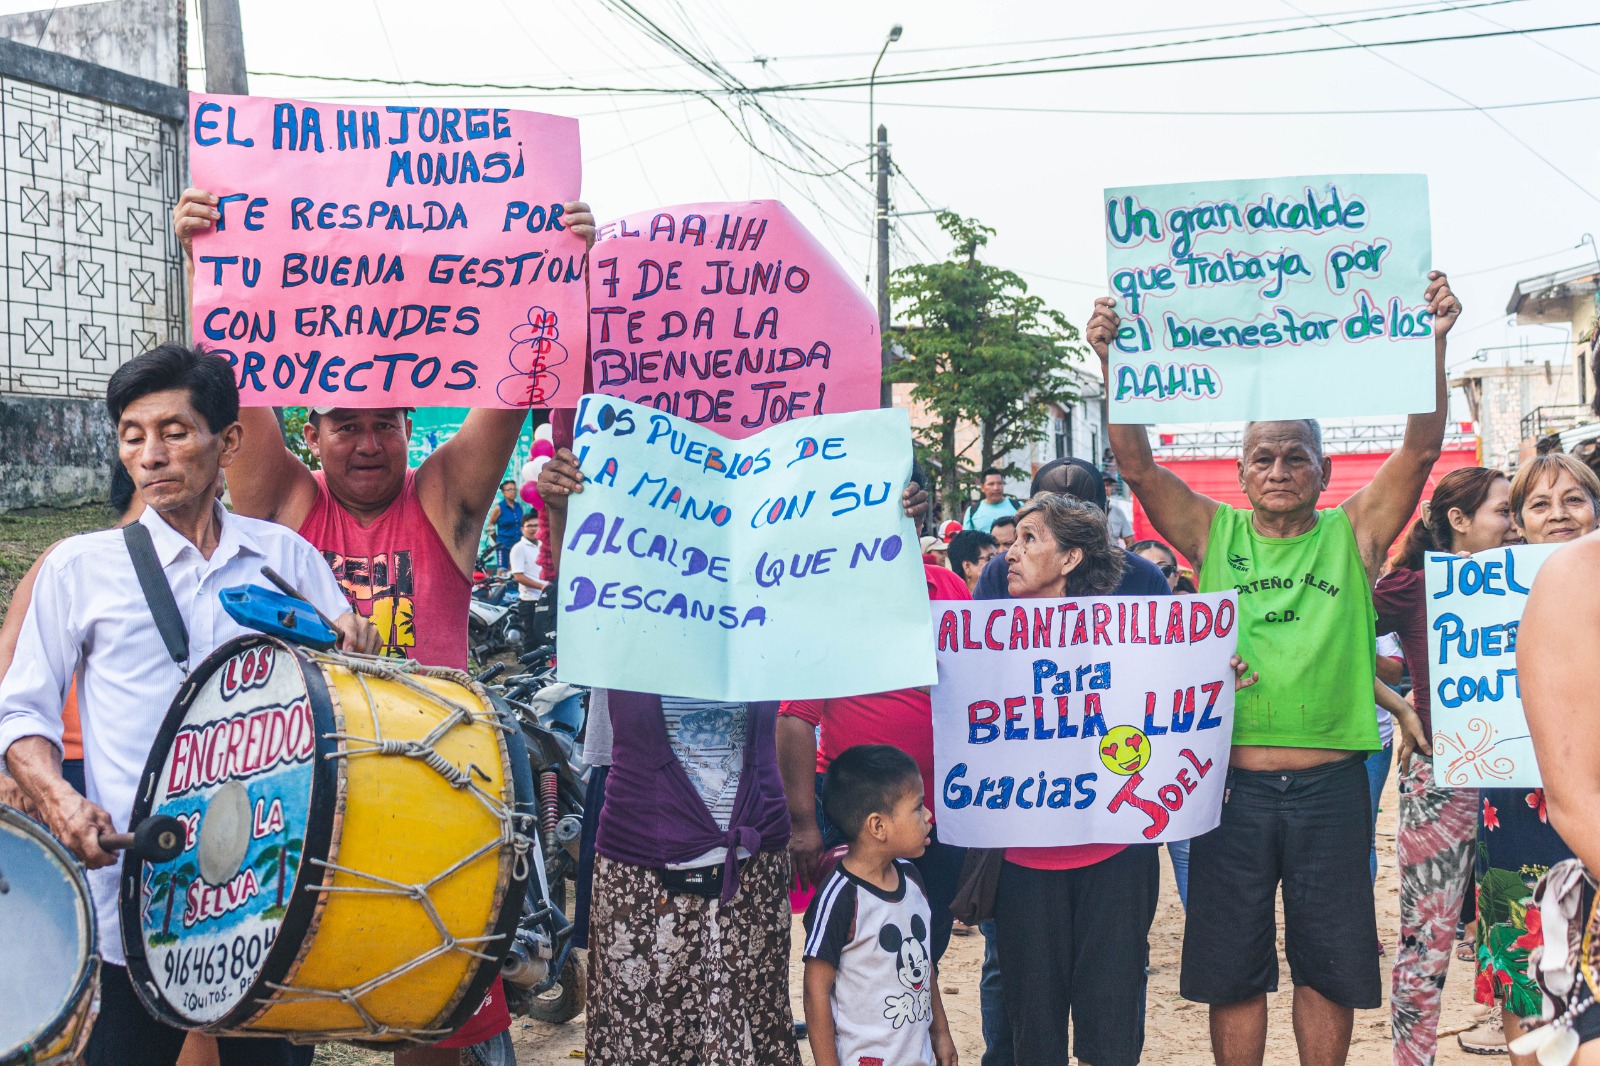 EL AA.HH JORGE
MONASi
TE RESPALDA POR
TU BUENA GESTiON
CON GRANDES
PROYECTOS.
MDSJB
EL AA.HH
7 DE JUNIO
TE DA LA
BIENVENIDA
JOEL
LOS PUEBLOS DE
LA MANO CON SU
ALCALDE QUE NO
DESCANSA
Un gran alcalde
que Trabaja por
el bienestar de los
AA.H.H
ALCANTARILLADO
Para
BELLA LUZ
Gracias JOEL
JOEL
LOS
ENGREIDOS
DE LA
SELVA
91646380
IQUITOS - PE
C.D.